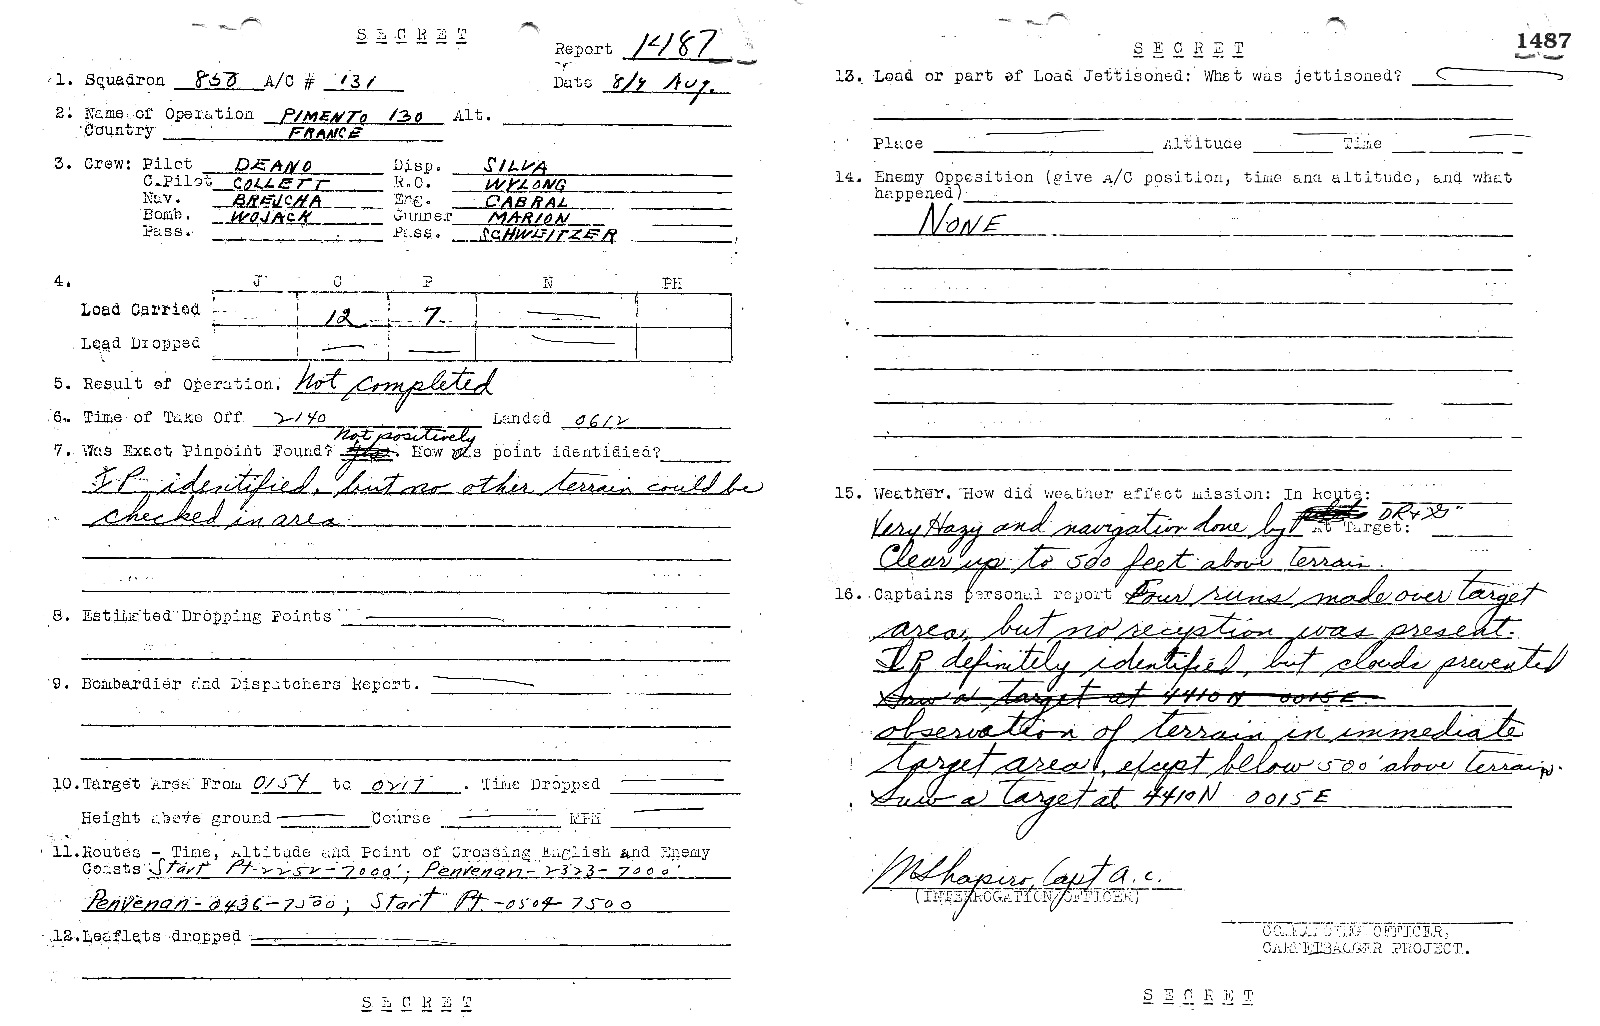 SECRET
Report 1487
1. Squadron 858 A/C # 131 Date 8/9 Aug.
2. Name of Operation PIMENTO 130 Alt.
Country FRANCE
3. Crew: Pilot DEANO Disp. SILVA
C.Pilot COLLETT R.O. WYLONG
Nav. BREJCHA Eng. CABRAL
Bomb. WOJACK Gunner MARION
Pass. Pass. SCHWEITZER
4. J C P N PH
Load Carried 12 7
Load Dropped
5. Result of Operation. Not completed
6. Time of Take Off 2140 Landed 0612
Not positively
7. Was Exact Pinpoint Found? How was point identidied?
I P identified, but no other terrain could be
checked in area
8. Estimated Dropping Points
9. Bombardier and Dispatchers Report.
10. Target Area From 0154 to 0217. Time Dropped
Height above ground Course MPH
11. Routes - Time, Altitude and Point of Crossing English and Enemy
Coasts Start Pt-2252-7000'; Penvenan-2323-7000'
Penvenan-0436-7500; Start Pt.-0504-7500
12. Leaflets dropped
SECRET
SECRET
1487
13. Load or part of Load Jettisoned: What was jettisoned?
Place Altitude Time
14. Enemy Opposition (give A/C position, time and altitude, and what
happened)
NONE
15. Weather. How did weather affect mission: In Route:
Very Hazy and navigation done by DR + "G" At Target:
Clear up to 500 feet above terrain.
16. Captains personal report Four runs made over target
area, but no reception was present.
I P definitely identified, but clouds prevented
Saw a target at 4410N 0015E
observation of terrain in immediate
target area, except below 500' above terrain.
Saw a target at 4410N 0015E
M Shapiro, Capt A.C.
(INTERROGATION OFFICER)
COMMANDING OFFICER,
CARPETBAGGER PROJECT.
SECRET